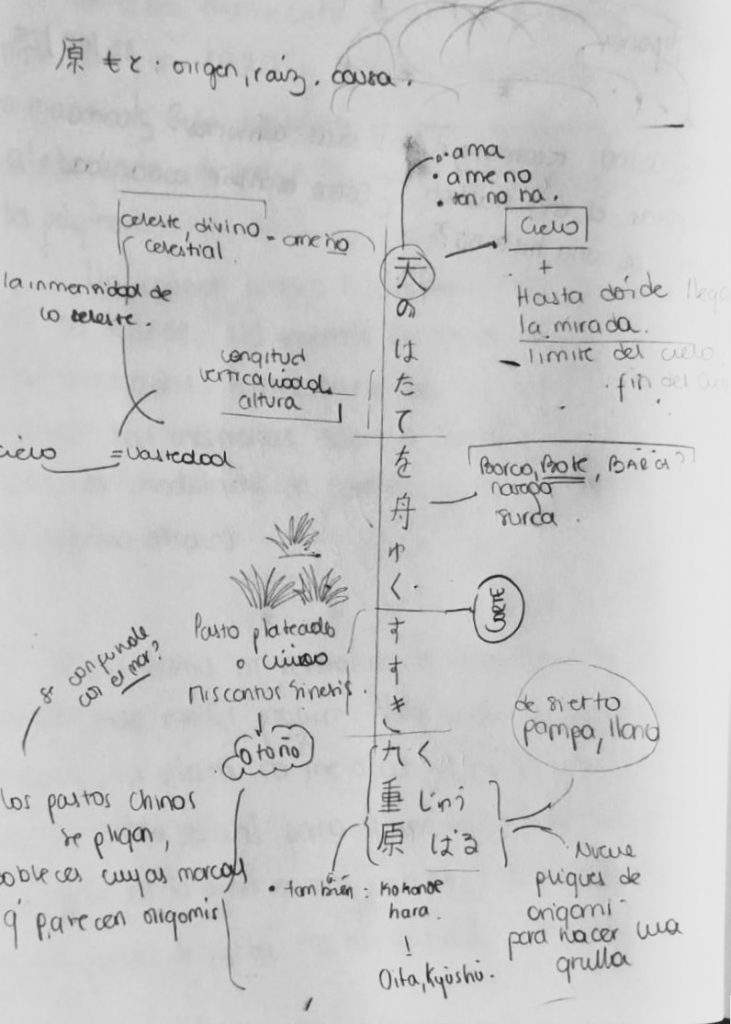 原 もと : origen, raíz. causa.
• ama
• ame no
• ten no na.
celeste, divino = ame no
celestial.
la inmensidad de
lo celeste.
cielo = vastedad
longitud
verticalidad
altura
Cielo
+
Hasta dónde llega
la mirada.
límite del cielo
fin del
天のはたてを舟ゆく
Barco, Bote, BARCA?
navega
surca.
CORTE
すすき
Pasto plateado
o chino
Miscantus sinesis.
Otoño
se confunde
con el mar?
los pastos chinos
se pligan,
dobleces cuyas marcas
q' parecen origomis
九 く
重 じゅう
原 ばる
desierto
pampa, llano
Nueve
pliques de
origami
para hacer una
grulla
• también : Kokonoe
hara.
Oita, Kyūshū.